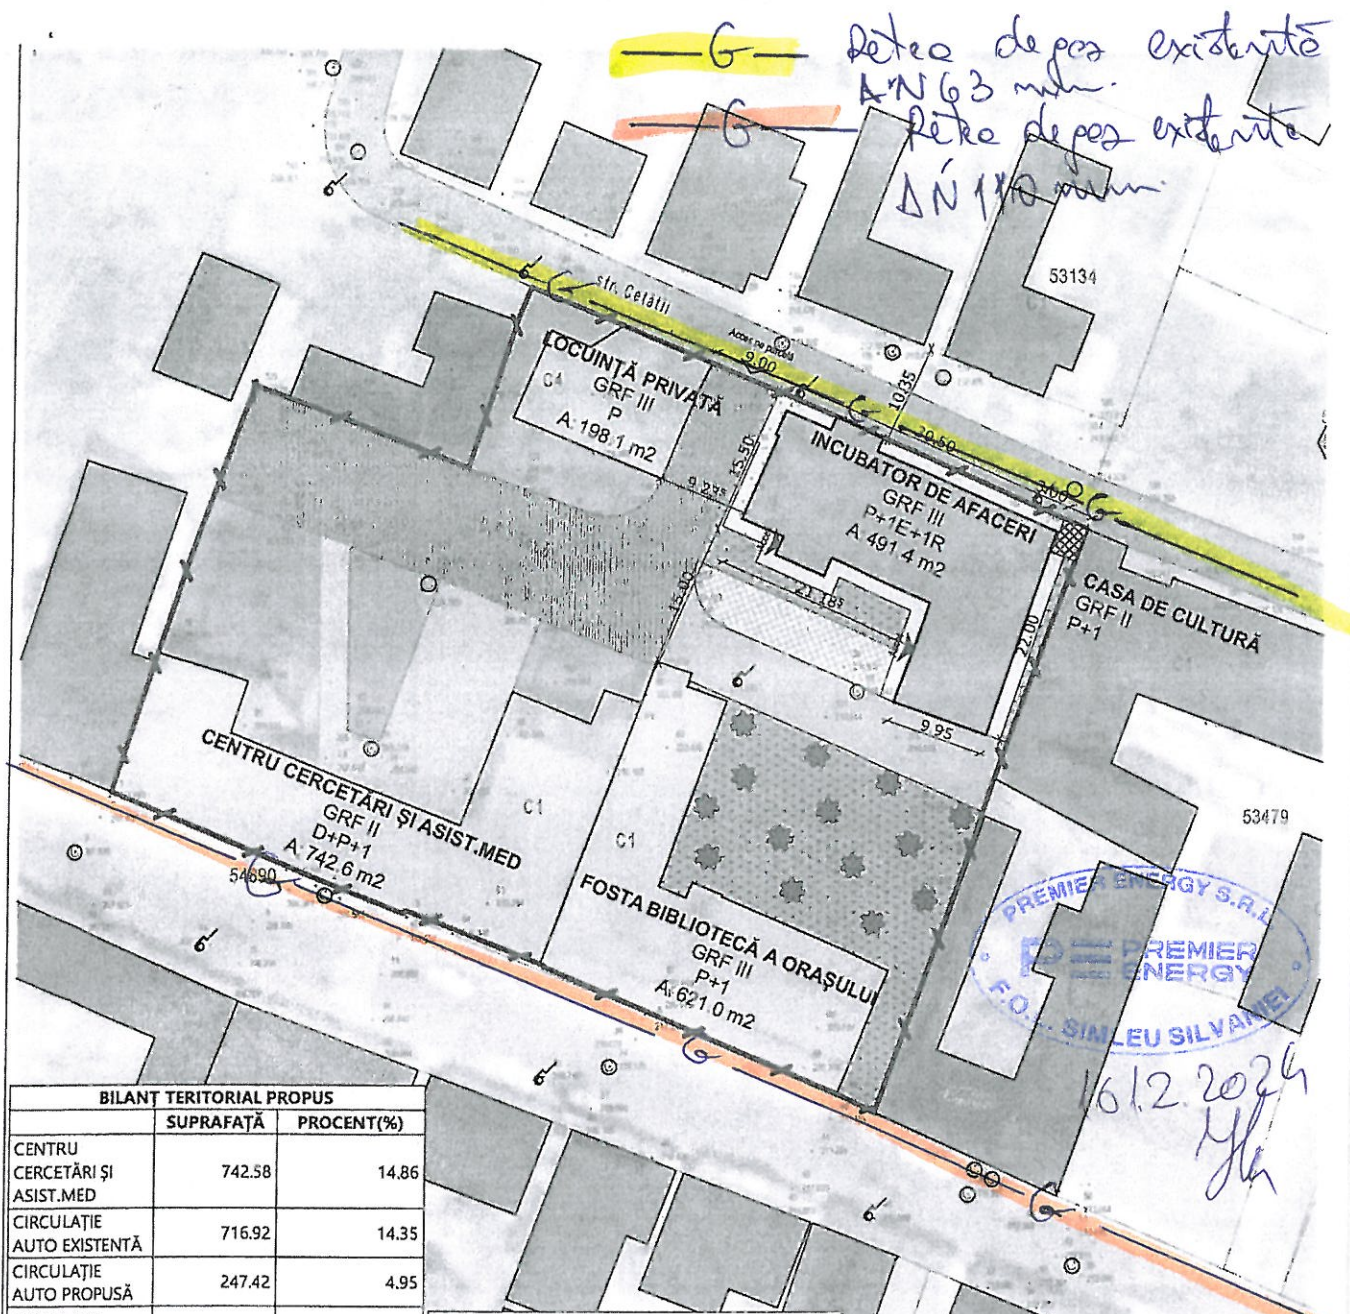 G Rețea de gaz existentă
DN 63 mm.
G Rețea de gaz existentă
DN 110 mm.
53134
str. Cetății
Acces pe parcelă
9.00
10.35
LOCUINȚĂ PRIVATĂ
GRF III
P
A: 198.1 m2
C1
15.50
20.50
3.00
INCUBATOR DE AFACERI
GRF III
P+1E+1R
A: 491.4 m2
9.295
CASA DE CULTURĂ
GRF II
P+1
21.185
15.00
22.00
9.95
CENTRU CERCETĂRI ȘI ASIST.MED
GRF II
D+P+1
A: 742.6 m2
C1
C1
53479
54690
FOSTA BIBLIOTECĂ A ORAȘULUI
GRF III
P+1
A: 621.0 m2
PREMIER ENERGY S.R.L
PREMIER
ENERGY
F.O. - SIMLEU SILVANIEI
16.12.2024
BILANȚ TERITORIAL PROPUS
SUPRAFAȚĂ PROCENT(%)
CENTRU
CERCETĂRI ȘI 742.58 14.86
ASIST.MED
CIRCULAȚIE
AUTO EXISTENTĂ 716.92 14.35
CIRCULAȚIE
AUTO PROPUSĂ 247.42 4.95